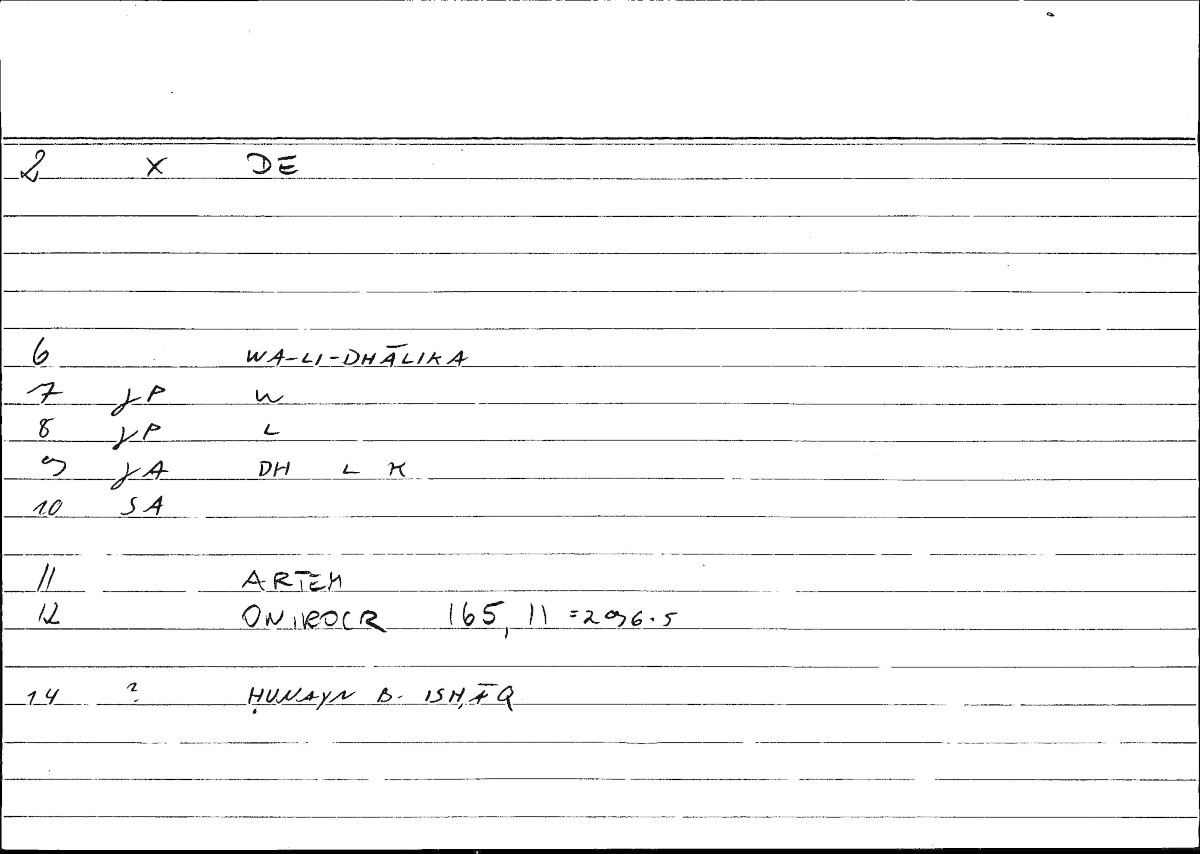 2 X DE
6 WA-LI-DHĀLIKA
7 JP W
8 JP L
9 JA DH L K
10 SA
11 ARTEM
12 ONIROCR 165, 11 =296.5
14 ? ḤUNAYN B. ISḤĀQ